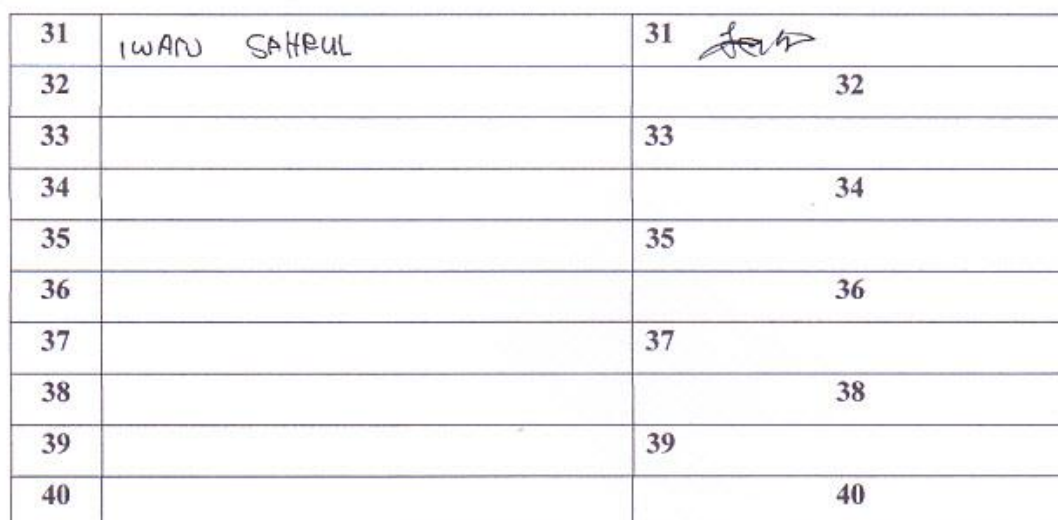 31 IWAN SAHRUL 31
32 32
33 33
34 34
35 35
36 36
37 37
38 38
39 39
40 40